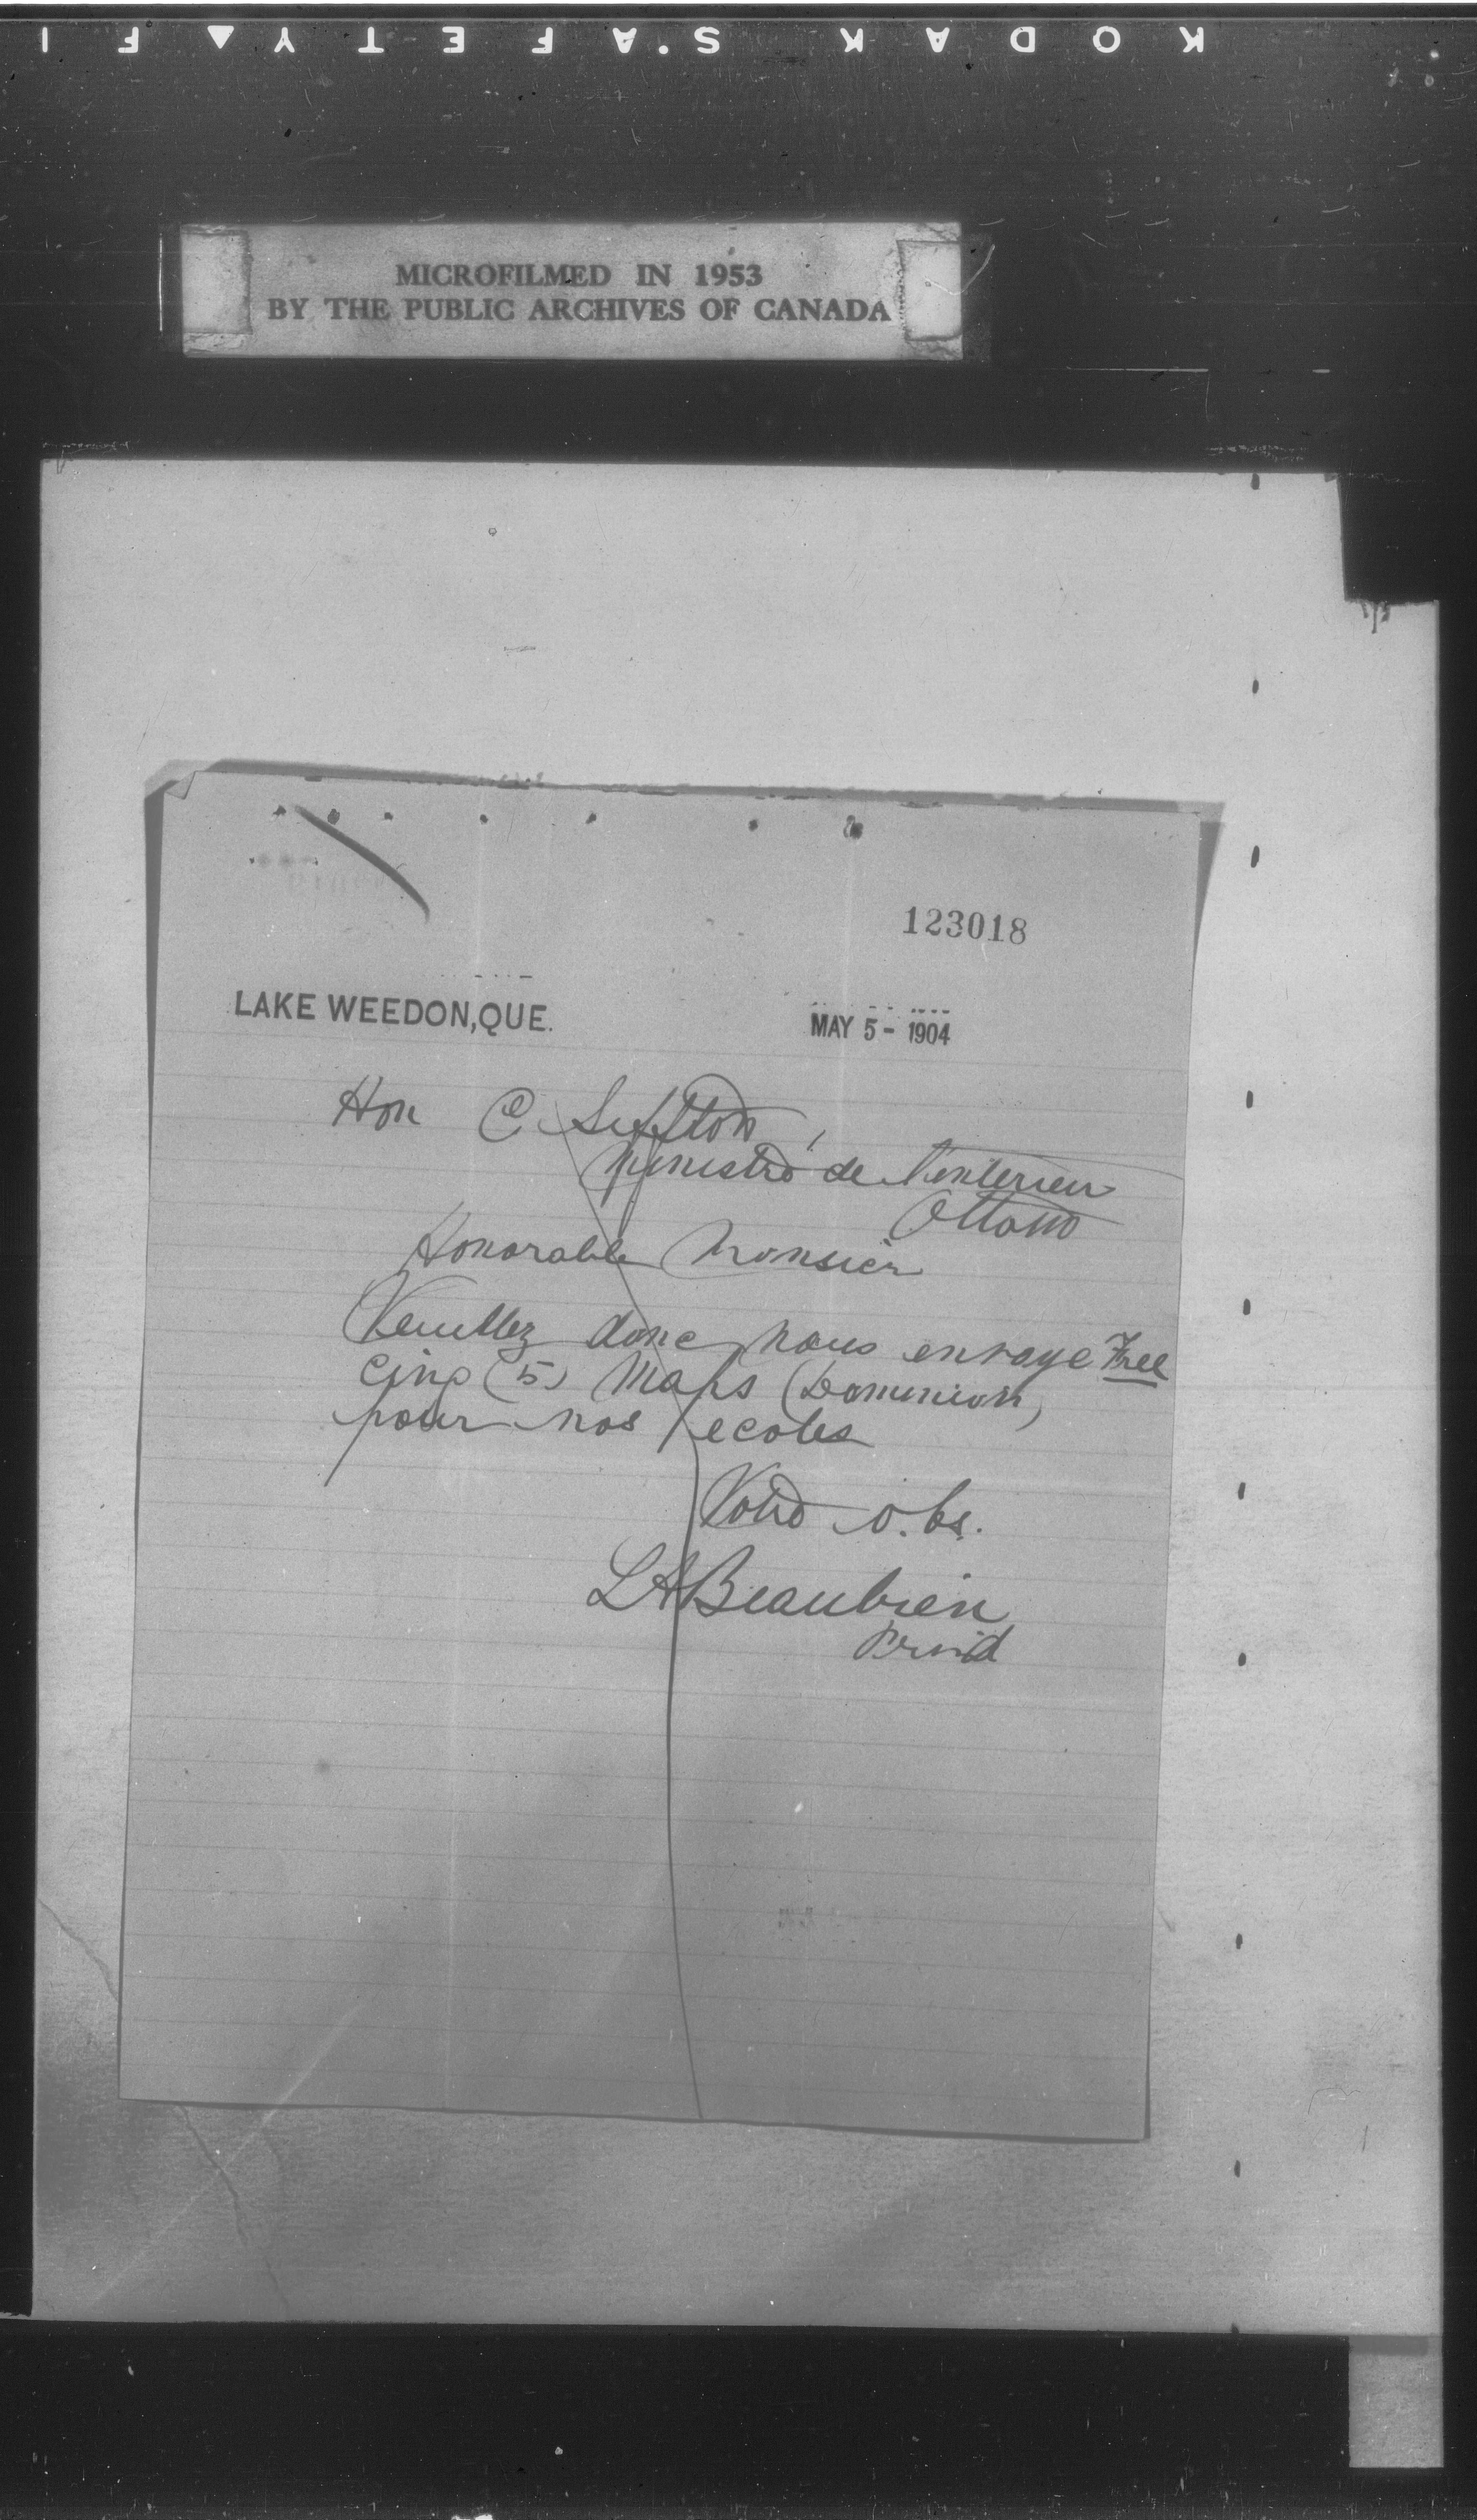 KODAK S.AFETY▲FI
MICROFILMED IN 1953
BY THE PUBLIC ARCHIVES OF CANADA
123018
LAKE WEEDON, QUE.
MAY 5 - 1904
Hon C Siffton,
Ministre de l'interieur
Ottawa
Honorable Monsieur
Veuillez donc nous envoye Free
cinq (5) Maps (Dominion)
pour nos ecoles
Votre o.bs.
LA Beaubien